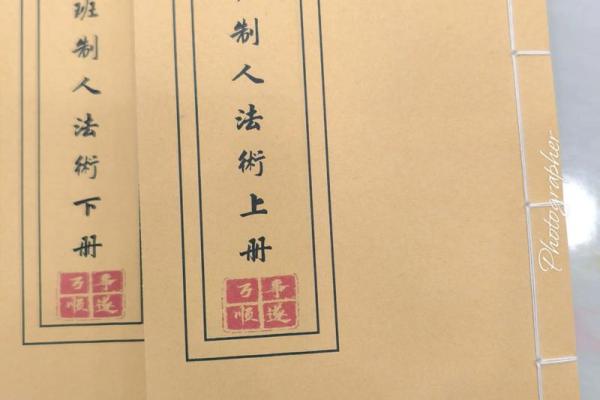 制人法術上册
万事
順遂
班制人法術下册
万事
順遂
Photographer